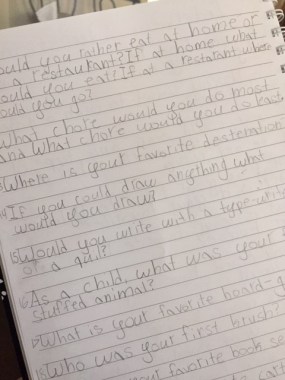 ould you rather eat at home or
a restaurant? If at home what
ould you eat? If at a restarant where
ould you go?
What chore would you do most
and what chore would you do least
Where is your favorite desteration
14 If you could draw anything what
would you draw?
15 Would you write with a type-write
or a quil?
16 As a child, what was your
stuffed animal?
17 What is your favorite board-g
18 Who was your first brush?
your favorite book se